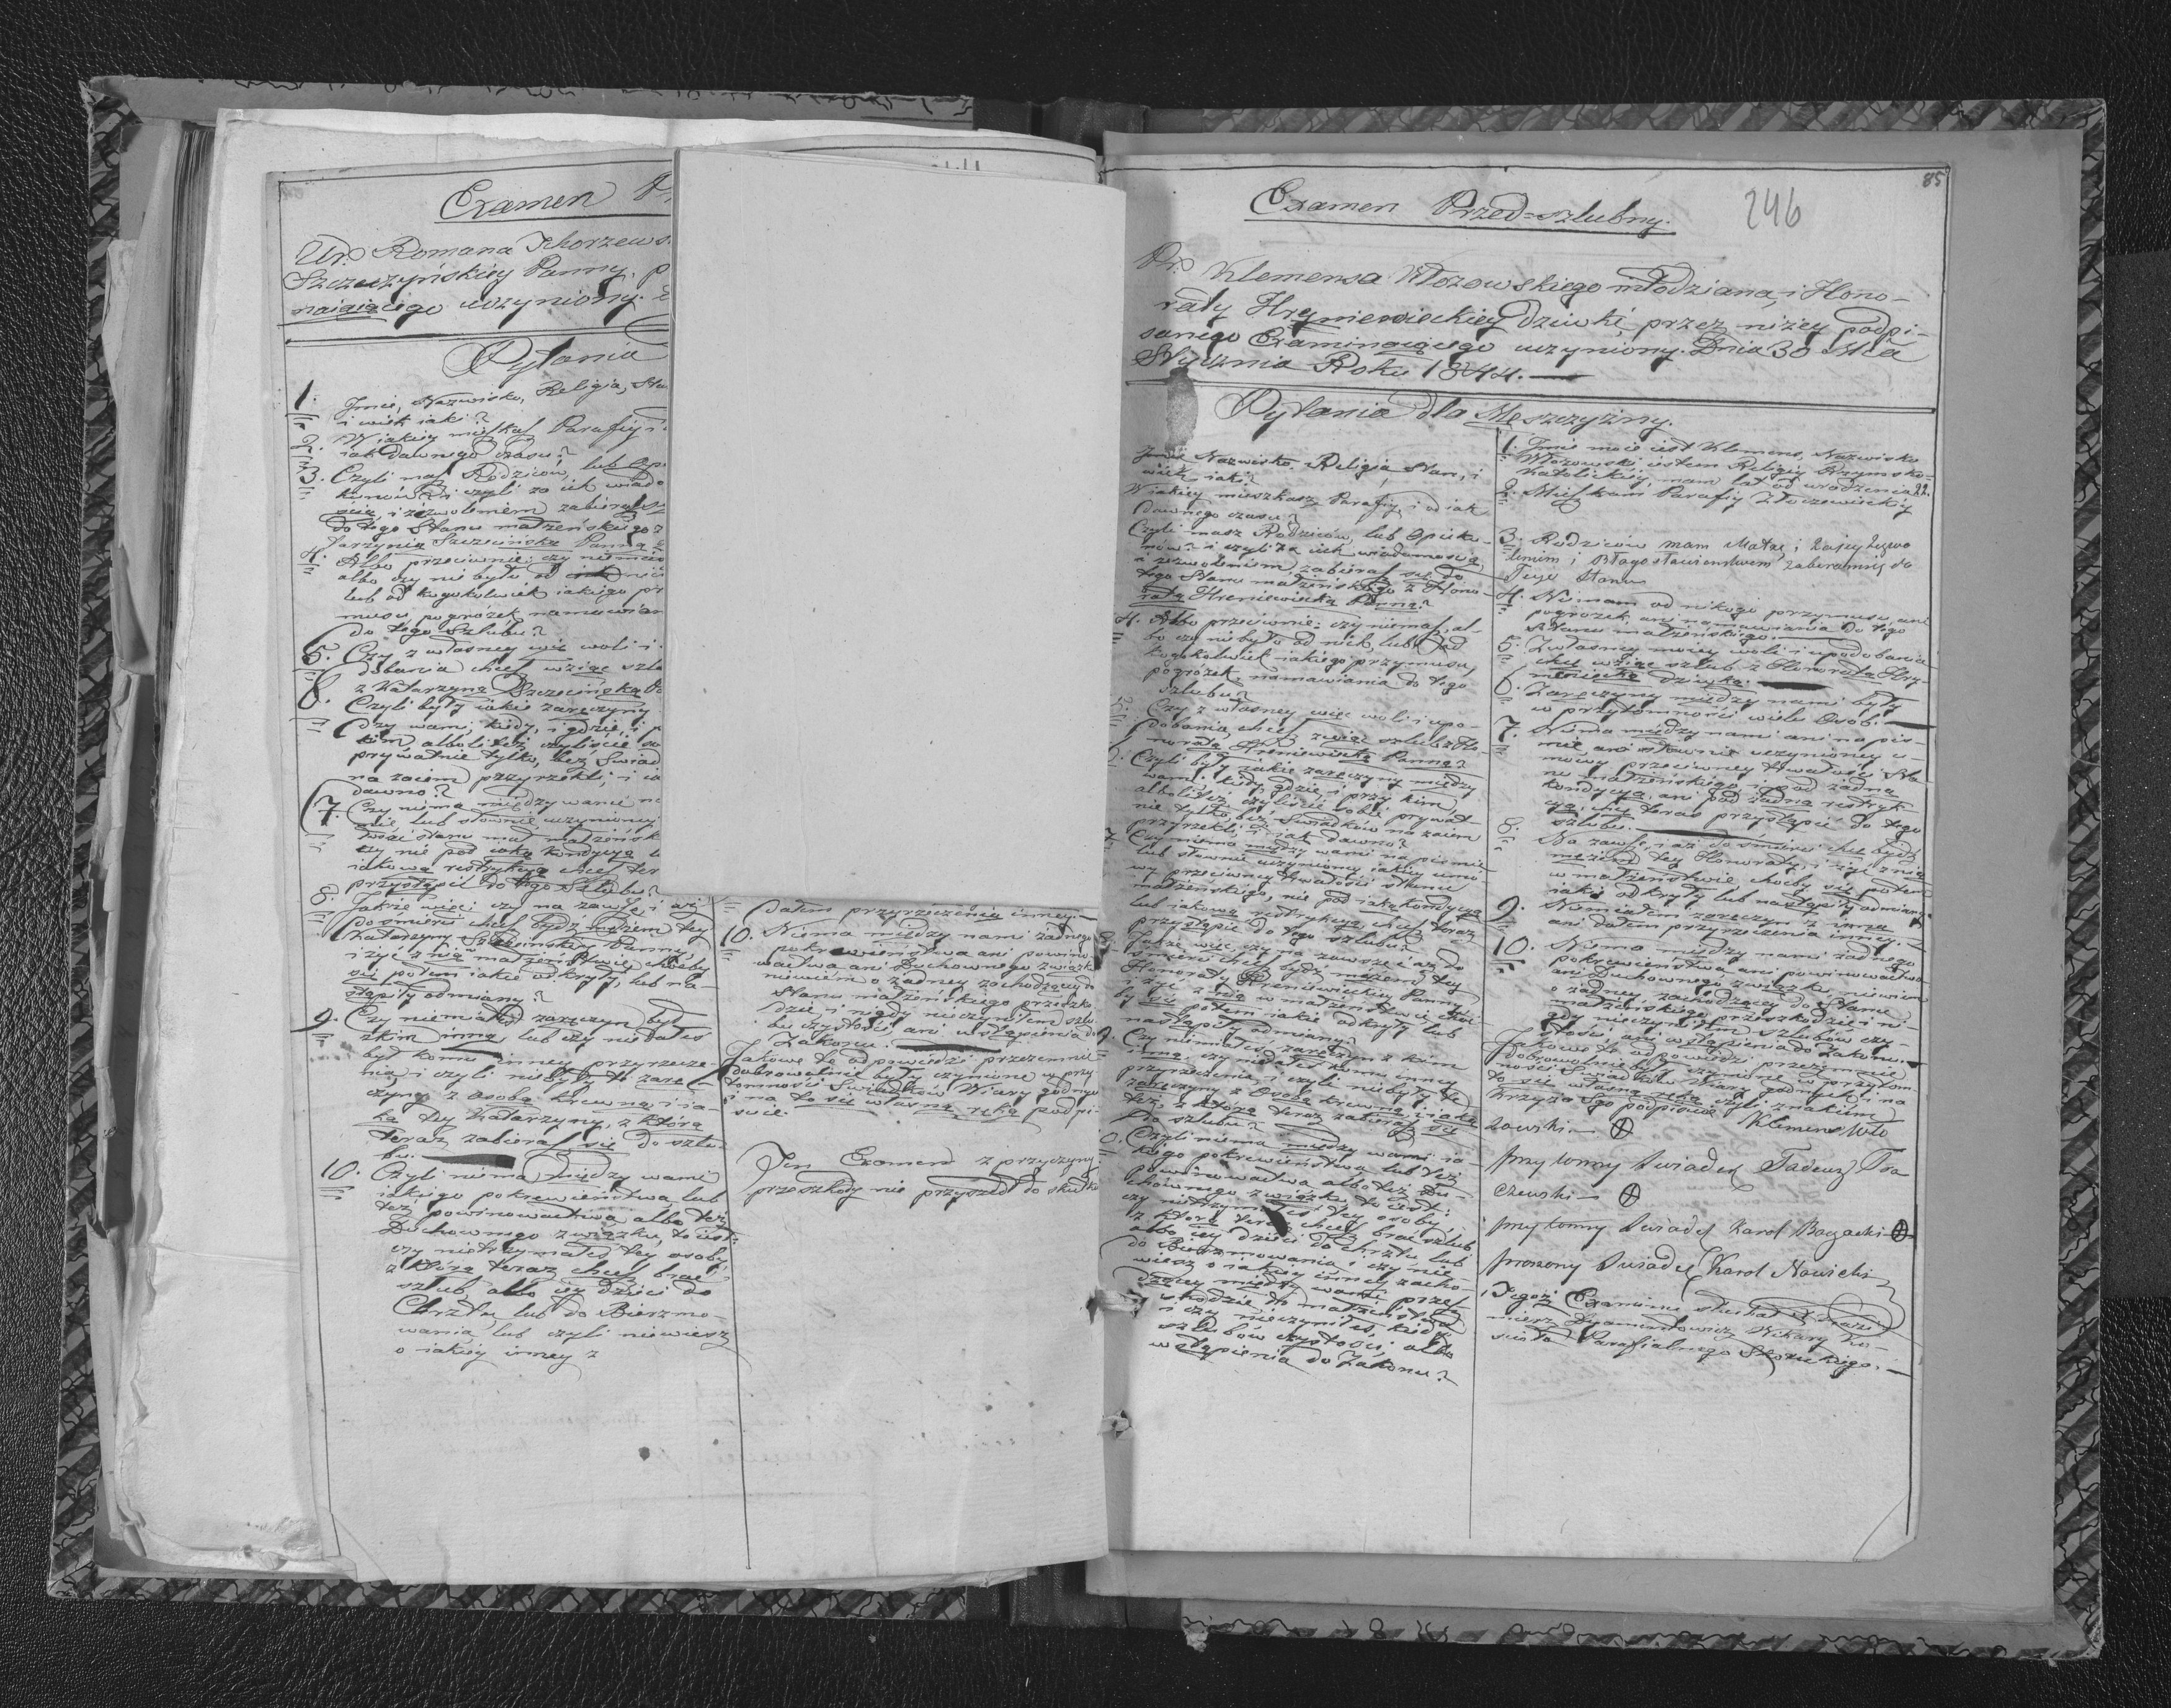 Examen
Ur. Romana Tchorzews
Szczeczyńskiey Panny, p
naiącego uczyniony.
Pytania
1. Jmie, Nazwisko, Religia, Sta
i wiek iaki?
2. W iakiey mieszkasz Parafiy i
iak dawnego czasu?
3. Czyli masz Rodziców, lub Opie
kunów? i czyli za ich wiado
scią, i zezwoleniem zabierasz
do tego Stanu małżeńskiego z
tarzyną Szczecińską Panną
4. Albo przeciwnie: czy niemasz
albo czy nie było od nich
lub od kogokolwiek iakiego pr
musu, pogróżek namawian
do tego Szlubu?
5. Czy z własney więc woli i
dobania chcesz wziąć szlu
z Katarzyną Szczecińską P
6. Czyli były iakie zaręczyny
dzy wami, kiedy, i gdzie, i p
kim albo li też czyliście so
prywatnie tylko, bez Świad
na zaiem przyrzekli, i ia
dawno?
7. Czy niema między wami na
mie lub słownie uczynioney
łości stanu małżeńsk
czy nie pod iaką kondycyą l
iakową restrykcyą chcesz ter
przystąpić do tego Szlubu?
8. Jakże więc: czy na zawsze i aż
do śmierci chcesz bydź mężem tey
Katarzyny Szczecińskiey Panny
i żyć z nią w małżeństwie choćby
się potem iakie odkryły, lub na-
stąpiły odmiany?
9. Czy niemiałeś zaręczyn
z kim inną lub czy nie dałeś
był komu inney przyrzecze-
nia i czyli niebyły to zarę-
czyny z osobą krewną, i ia-
ką tey Katarzyny, z którą
teraz zabierasz się do szlu-
bu.
10. Czyli niema między wami
iakiego pokrewieństwa lub
też powinowactwa albo też
Duchownego związku, to iest:
czy nietrzymałeś tey osoby,
z którą teraz chcesz brać
szlub, albo iey dzieci do
Chrztu, lub do Bierzmo-
wania, lub czyli niewiesz
o iakiey inney z
dałem przyrzeczenia inney.
10. Niema między nami żadnego
pokrewieństwa ani powino-
wactwa ani Duchownego związku
niewiem o żadney zachodzącey do
Stanu małżeńskiego przeszko-
dzie i nigdy nieczyniłem szlu-
bu czystości ani wstąpienia do
Zakonu.
Jakowe to odpowiedzi przezemnie
dobrowolnie były czynione w przy-
tomności Świadków Wiary godnych
i na to się własną ręką podpi-
suię.
Ten Examen z przyczyny
przeszkody nie przyszedł do skutku
85
246
Examen Przed-szlubny.
Pr. Klemensa Włozowskiego młodziana, i Hono-
raty Hryniewieckiey dziwki, przez niżey podpi-
sanego Examinaiącego uczyniony. Dnia 30 Mca
Stycznia Roku 1844.
Pytania dla Męszczyzny.
Jmie Nazwisko, Religia, Stan, i
wiek iaki?
W iakiey mieszkasz Parafiy, i od iak
dawnego czasu?
Czyli masz Rodziców, lub Opieku-
nów? i czyli za ich wiadomością,
a zezwoleniem zabierasz się do
tego Stanu małżeńskiego z Hono-
ratą Hreniewiecką Panną?
4. Albo przeciwnie: czy niemasz, al-
bo czy nie było od nich, lub od
kogokolwiek iakiego przymusu,
pogróżek, namawiania do tego
Szlubu?
5. Czy z własney więc woli i upo-
dobania chcesz wziąć szlub z Ho-
noratą Hreniewiecką Panną?
6. Czyli były iakie zaręczyny między
wami: kiedy, gdzie, i przy kim,
albo li też czyliście sobie prywat-
nie tylko, bez Świadków na zaiem
przyrzekli, i iak dawno?
7. Czy niema między wami na piśmie
lub słownie uczynioney iakiey umo-
wy przeciwney trwałości stanu
małżeńskiego, nie pod iaką kondycyą
lub iakową restrykcyą chcesz teraz
przystąpić do tego szlubu?
8. Jakże więc, czy na zawsze i aż do
śmierci chcesz bydź mężem tey
Honoraty Hreniewieckiey Panny
i żyć z nią w małżeństwie choć-
by się potem iakie odkryły lub
nastąpiły odmiany?
9. Czy niemiałeś zaręczyn z kim
inną, czy niedałeś komu inney
przyrzeczenia, i czyli niebyły te
zaręczyny z Osobą krewną, iaką
też, z którą teraz zabierasz się
do szlubu?
10. Czyli niema między wami ia-
kiego pokrewieństwa lub też
powinowactwa albo też Du-
chownego związku to iest:
czy nietrzymałeś tey osoby,
z którą teraz chcesz brać szlub
albo iey dzieci do chrztu lub
do Bierzmowania i czy nie-
wiesz o iakiey inney zacho-
dzącey między wami prze-
szkodzie do małżeństwa
i czy nieczyniłeś kiedy
szlubów czystości albo
wstąpienia do Zakonu?
1. Jmie moie iest Klemens, Nazwisko
Włozowski, iestem Religiy Rzymsko-
Katolickiey, mam lat od urodzenia 22.
2. Mieszkam Parafiy
3. Rodziców mam Matkę i zaiey zezwo
leniem i Błogosławieństwem zabieramsię do
Tego Stanu
4. Niemam od nikogo przymusu, ani
pogróżek, ani namawiania do tego
Stanu małżeńskiego.
5. Z własney moiey woli i upodobania
chcę wziąć szlub z Honoratą Hry-
niewiecką dziwką.
6. Zaręczyny między nami były
w przytomności wielu Osob.
7. Niema między nami ani na piś-
mie, ani słownie uczynioney u-
mowy przeciwney trwałości Sta-
nu małżeńskiego, i pod żadną
kondycyą, ani pod żadną restryk-
cyą, chcę teraz przystąpić do tego
szlubu.
8. Na zawsze, i aż do śmierci chcę bydź
mężem tey Honoraty, i żyć z nią
w małżeństwie choćby się potem
iakie odkryły lub nastąpiły odmiany.
9. Niemiałem zaręczyn z inną
ani dałem przyrzeczenia inney.
10. Niema między nami żadnego
pokrewieństwa ani powinowactwa
ani Duchownego związku, niewiem
o żadney zachodzącey do Stanu
małżeńskiego przeszkodzie i ni-
gdy nieczyniłem szlubów czy-
stości, ani wstąpienia do Zakonu.
Jakowe to odpowiedzi przezemnie
dobrowolnie były czynione w przytom-
ności Świadków Wiary godnych i na
to się własną ręką czyli znakiem
krzyża Sgo podpisuię Klemens Wło
zowski
przytomny Swiadek Tadeuz
czewski
przytomny Swiadek Karol
proszony Swiadek Karol Nowicki
Tegoż Examinu słuchał X. Kazi-
mierz Wikary Ko-
ścioła Parafialnego